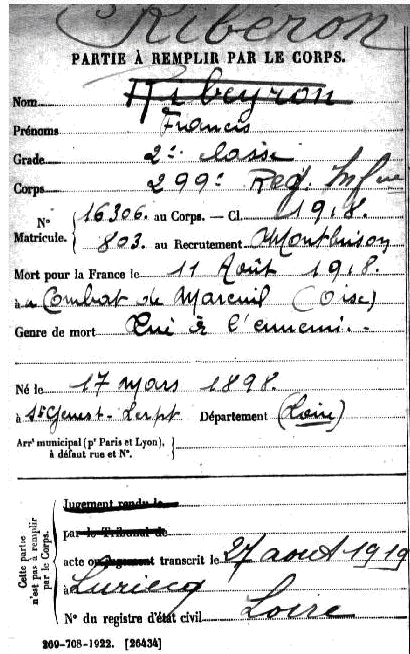 RIBÉRON
PARTIE À REMPLIR PAR LE CORPS.
Nom Ribeyron
Prénoms Francis
Grade 2e classe
Corps 299e Reg. Inf rie
N° Matricule. { 16306. au Corps. — Cl. 1918.
803. au Recrutement Montbrison
Mort pour la France le 11 Août 1918.
à au Combat de Mareuil (Oise)
Genre de mort Tué à l'ennemi.
Né le 17 mars 1898.
à St Genest-Lerpt Département (Loire)
Arrt municipal (pr Paris et Lyon), à défaut rue et N°.
Cette partie n'est pas à remplir par le Corps.
Jugement rendu le
par le Tribunal de
acte ou jugement transcrit le 27 août 1919
à Luriecq
N° du registre d'état civil Loire
269-708-1922. [26434]